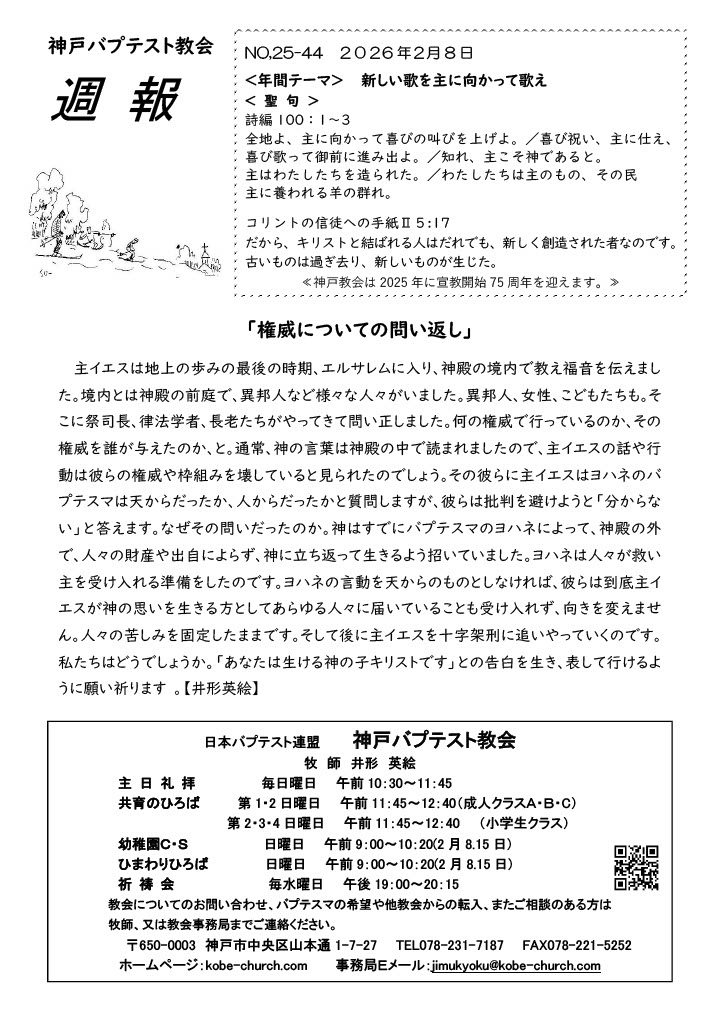 神戸バプテスト教会
週 報
NO,25-44 2026年2月8日
<年間テーマ> 新しい歌を主に向かって歌え
< 聖 句 >
詩編 100：1～3
全地よ、主に向かって喜びの叫びを上げよ。／喜び祝い、主に仕え、
喜び歌って御前に進み出よ。／知れ、主こそ神であると。
主はわたしたちを造られた。／わたしたちは主のもの、その民
主に養われる羊の群れ。
コリントの信徒への手紙Ⅱ 5:17
だから、キリストと結ばれる人はだれでも、新しく創造された者なのです。
古いものは過ぎ去り、新しいものが生じた。
≪神戸教会は 2025 年に宣教開始 75 周年を迎えます。≫
「権威についての問い返し」
主イエスは地上の歩みの最後の時期、エルサレムに入り、神殿の境内で教え福音を伝えまし
た。境内とは神殿の前庭で、異邦人など様々な人々がいました。異邦人、女性、こどもたちも。そ
こに祭司長、律法学者、長老たちがやってきて問い正しました。何の権威で行っているのか、その
権威を誰が与えたのか、と。通常、神の言葉は神殿の中で読まれましたので、主イエスの話や行
動は彼らの権威や枠組みを壊していると見られたのでしょう。その彼らに主イエスはヨハネのバ
プテスマは天からだったか、人からだったかと質問しますが、彼らは批判を避けようと「分からな
い」と答えます。なぜその問いだったのか。神はすでにバプテスマのヨハネによって、神殿の外
で、人々の財産や出自によらず、神に立ち返って生きるよう招いていました。ヨハネは人々が救い
主を受け入れる準備をしたのです。ヨハネの言動を天からのものとしなければ、彼らは到底主イ
エスが神の思いを生きる方としてあらゆる人々に届いていることも受け入れず、向きを変えませ
ん。人々の苦しみを固定したままです。そして後に主イエスを十字架刑に追いやっていくのです。
私たちはどうでしょうか。「あなたは生ける神の子キリストです」との告白を生き、表して行けるよ
うに願い祈ります 。【井形英絵】
日本バプテスト連盟 神戸バプテスト教会
牧 師 井形 英絵
主 日 礼 拝 毎日曜日 午前 10:30～11:45
共育のひろば 第 1・2 日曜日 午前 11:45～12:40（成人クラスA・B・C）
第 2・3・4 日曜日 午前 11:45～12:40 （小学生クラス）
幼稚園C・S 日曜日 午前 9:00～10:20(2 月 8.15 日)
ひまわりひろば 日曜日 午前 9:00～10:20(2 月 8.15 日)
祈 祷 会 毎水曜日 午後 19:00～20:15
教会についてのお問い合わせ、バプテスマの希望や他教会からの転入、またご相談のある方は
牧師、又は教会事務局までご連絡ください。
〒650-0003 神戸市中央区山本通 1-7-27 TEL078-231-7187 FAX078-221-5252
ホームページ：kobe-church.com 事務局Eメール：jimukyoku@kobe-church.com